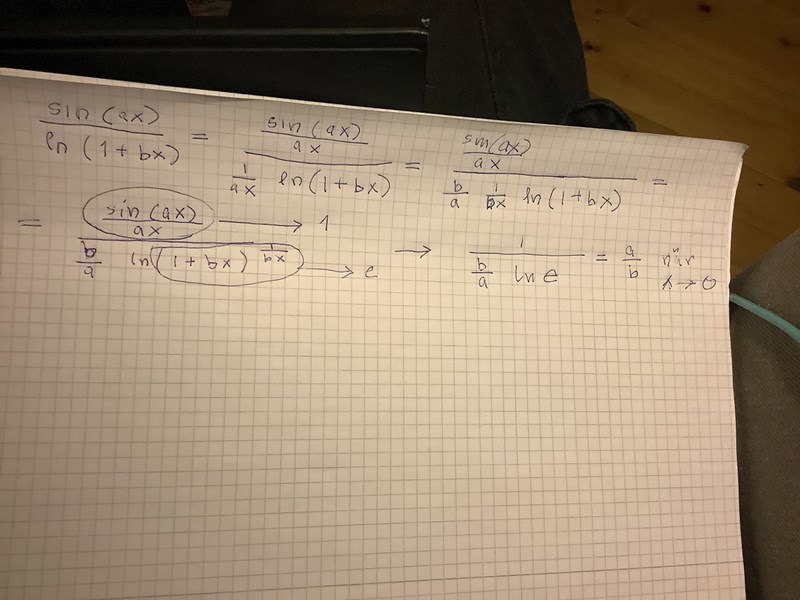 sin(ax)/ln(1+bx) = (sin(ax)/ax)/(1/ax ln(1+bx)) = (sin(ax)/ax)/(b/a 1/bx ln(1+bx)) =
= (sin(ax)/ax)/(b/a ln(1+bx)^(1/bx)) → 1 → e → 1/(b/a ln e) = a/b när x→0